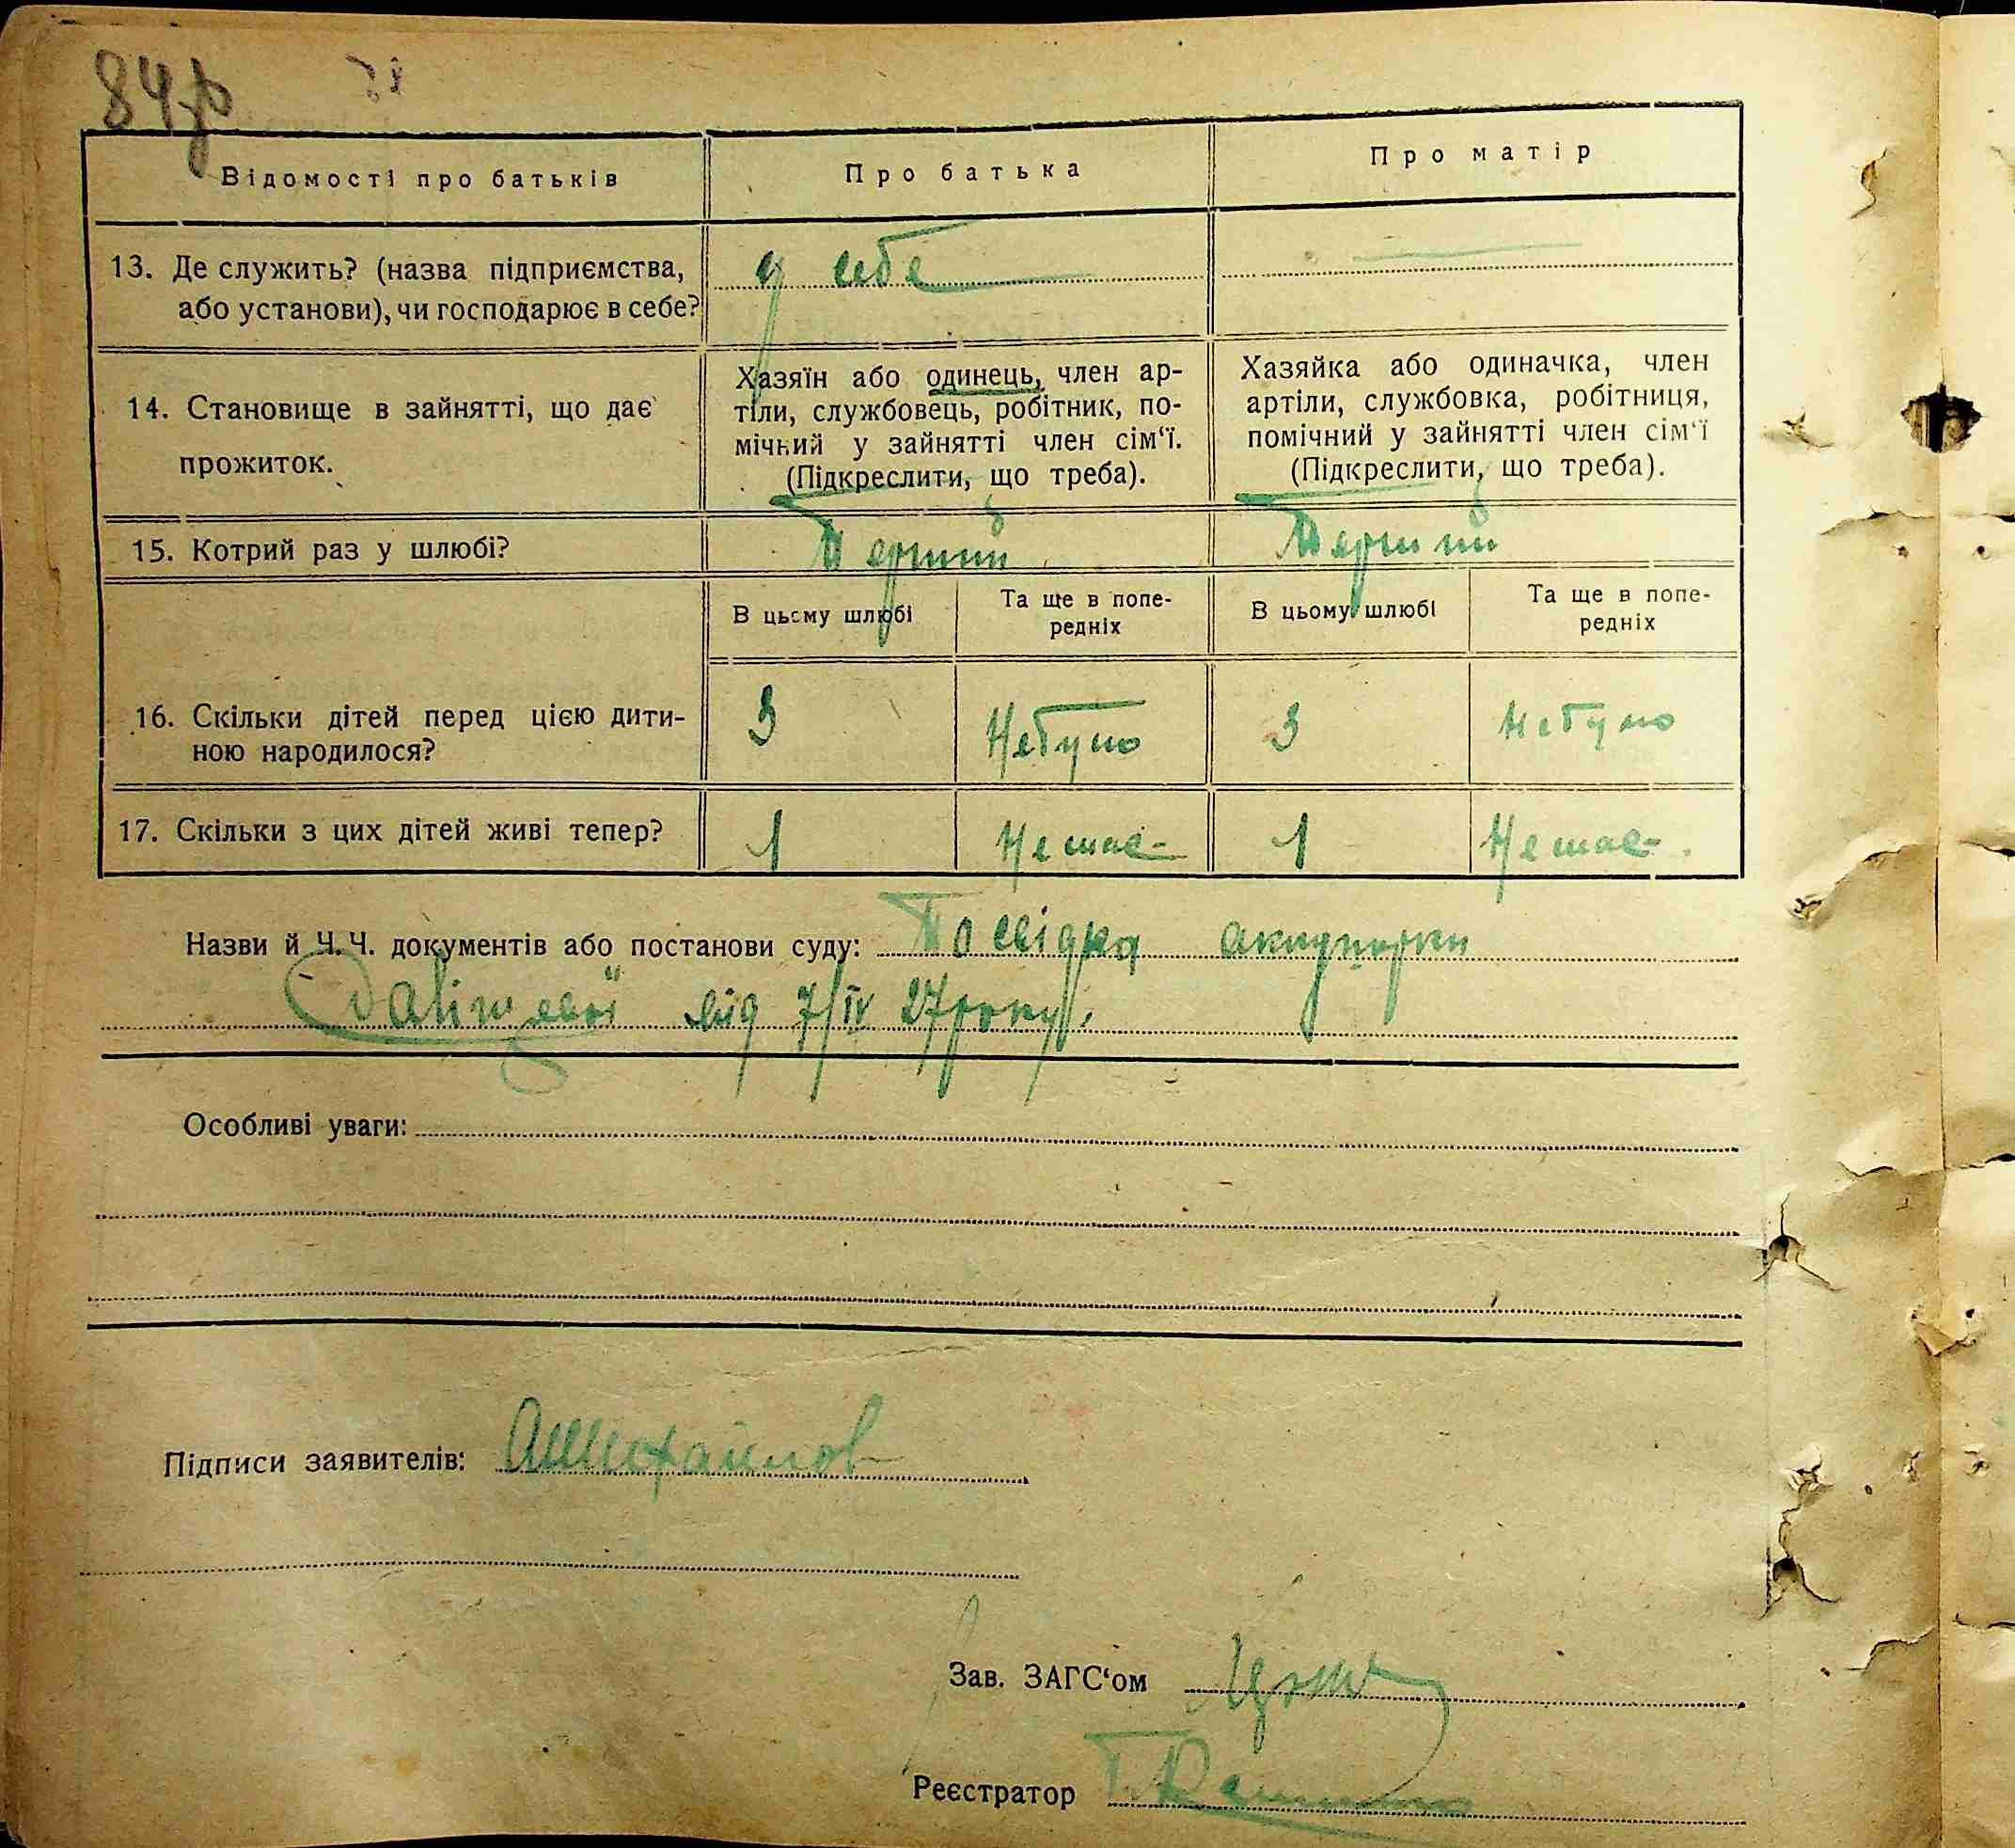 84
Відомості про батьків
Про батька
Про матір
13. Де служить? (назва підприємства,
або установи), чи господарює в себе?
у себе
14. Становище в зайнятті, що дає
прожиток.
Хазяїн або одинець, член ар-
тіли, службовець, робітник, по-
мічний у зайнятті член сім‘ї.
(Підкреслити, що треба).
Хазяйка або одиначка, член
артіли, службовка, робітниця,
помічний у зайнятті член сім‘ї
(Підкреслити, що треба).
15. Котрий раз у шлюбі?
Перший
Перший
В цьому шлюбі
Та ще в попе-
редніх
В цьому шлюбі
Та ще в попе-
редніх
16. Скільки дітей перед цією дити-
ною народилося?
3
Небуло
3
Небуло
17. Скільки з цих дітей живі тепер?
1
Немає
1
Немає
Назви й Ч.Ч. документів або постанови суду: Посвідка акушорки
від 7/IV 27 року.
Особливі уваги:
Підписи заявителів:
Зав. ЗАГС‘ом
Реєстратор